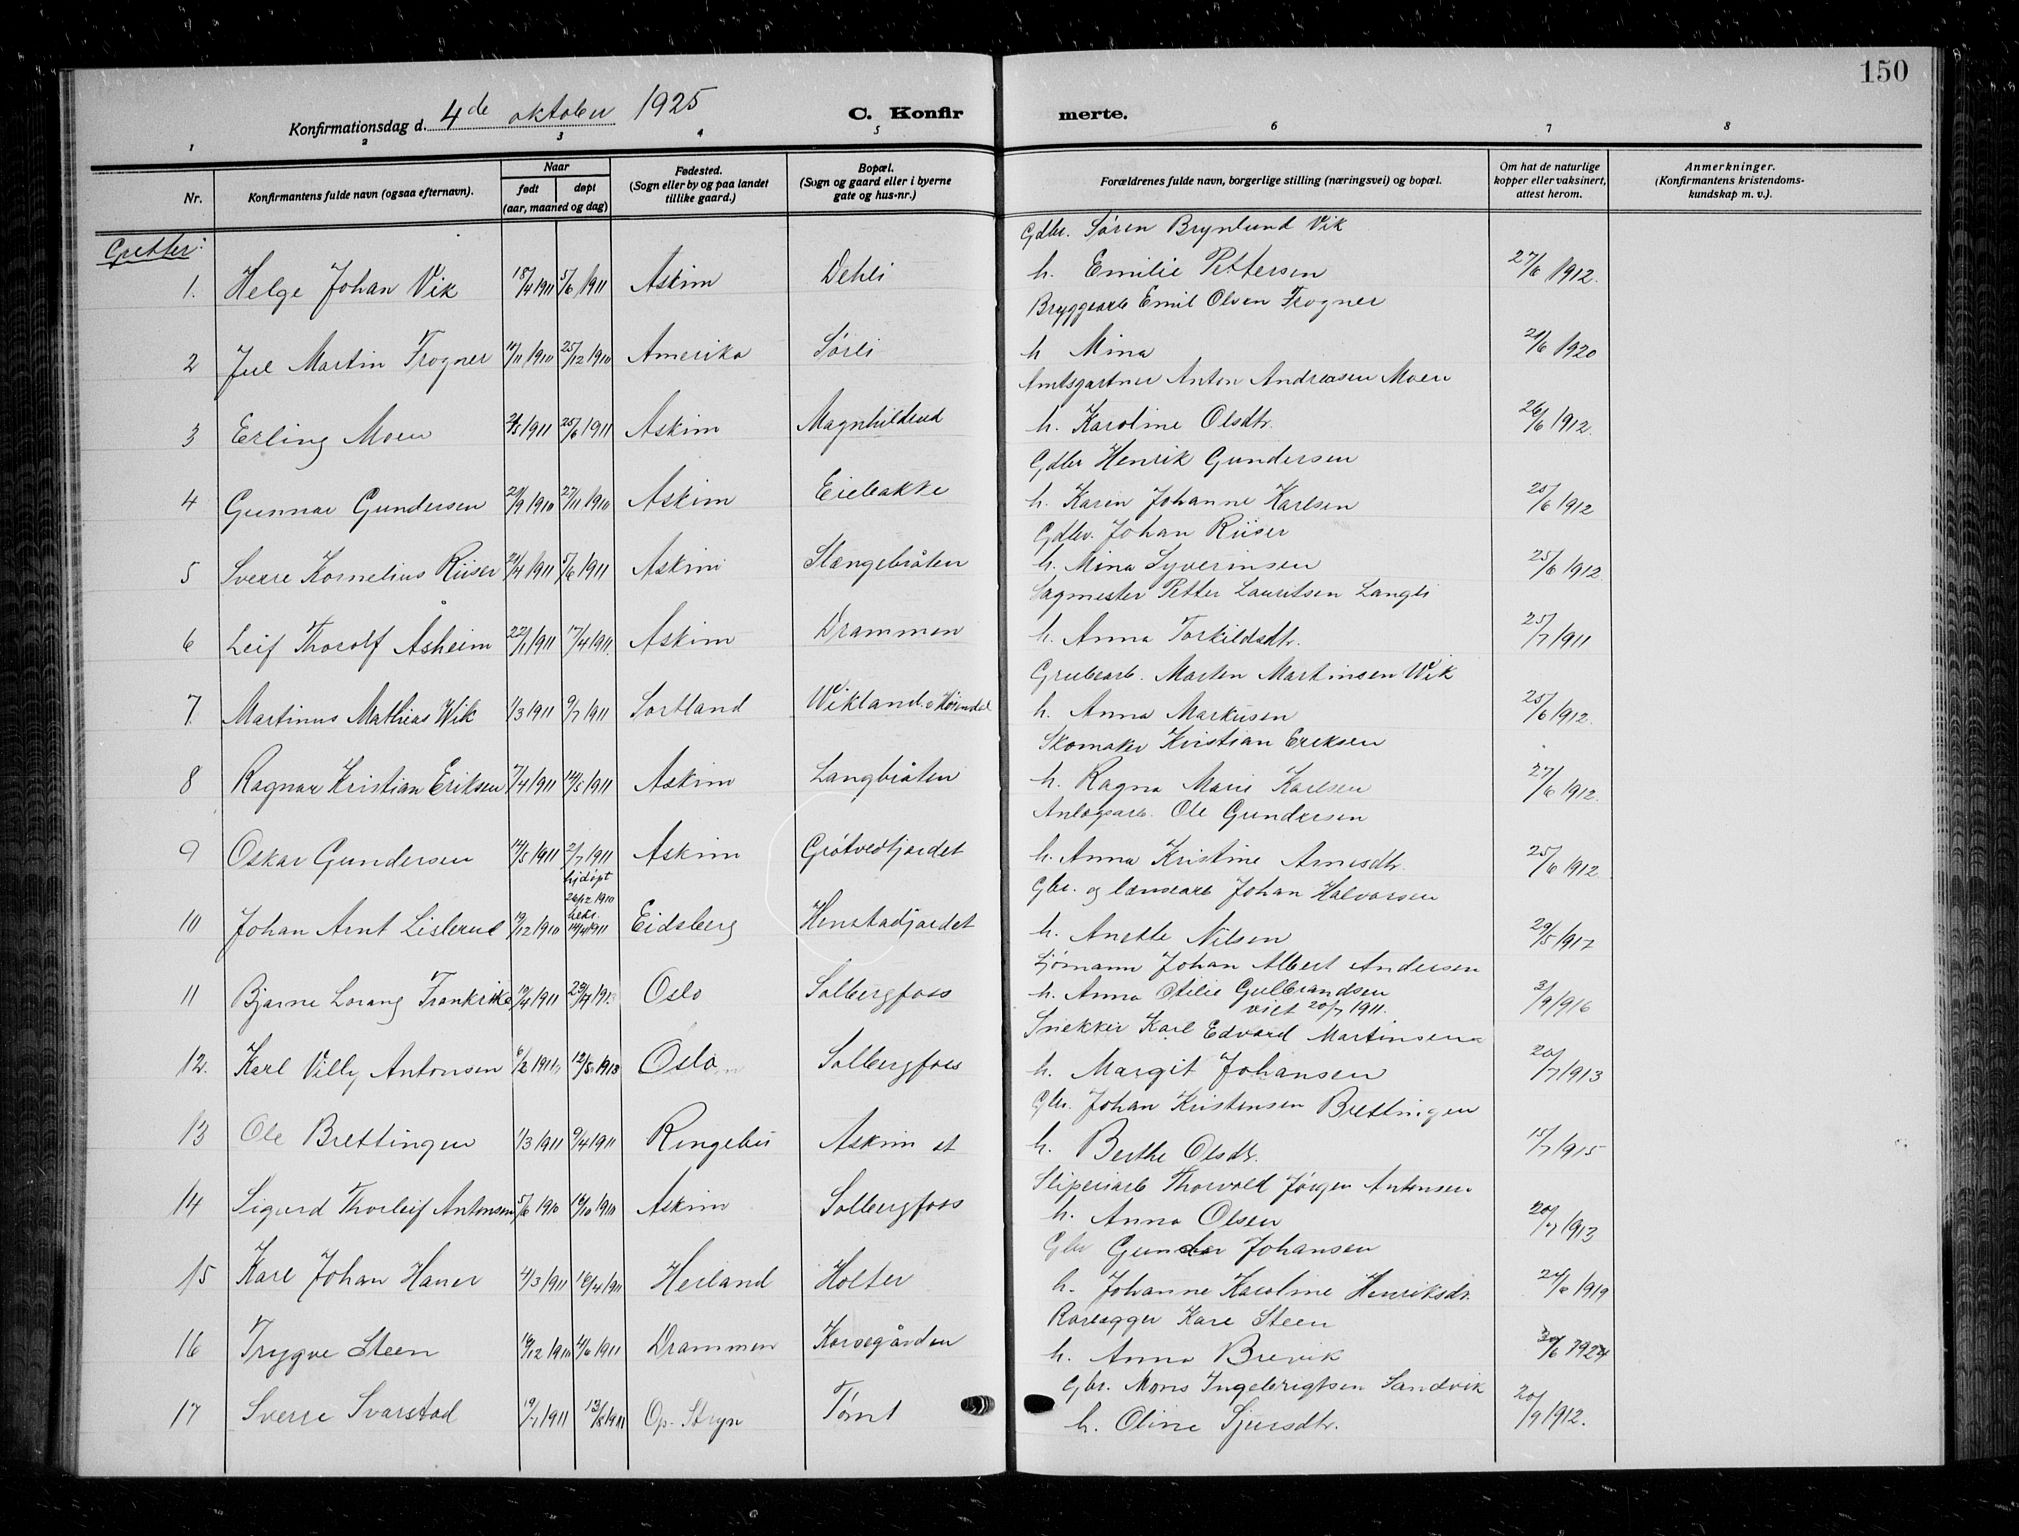 150
Konfirmationsdag d. 4de oktober 1925 C. Konfirmerte.
1 2 3 4 5 6 7 8
Nr. Konfirmantens fulde navn (ogsaa efternavn). Naar født døpt (aar, maaned og dag) Fødested. (Sogn eller by og paa landet tillike gaard.) Bopæl. (Sogn og gaard eller i byerne gate og hus-nr.) Forældrenes fulde navn, borgerlige stilling (næringsvei) og bopæl. Om hat de naturlige kopper eller vaksinert, attest herom. Anmerkninger. (Konfirmantens kristendoms-kundskap m. v.).
Gutter:
Gdbr. Søren Brynlund Vik
1. Helge Johan Vik 18/4 1911 5/6 1911 Askim Dehli h. Emilie Pettersen 27/6 1912.
Bryggearb Emil Olsen Trogner
2 Jul Martin Trogner 10/11 1910 25/12 1910 Amerika Sørli h Mina 21/6 1920
Amtsgartner Anton Andreasen Moen
3 Erling Moen 2/5 1911 25/6 1911 Askim Magnhildrud h. Karoline Olsdtr. 26/6 1912.
Gdbr Henrik Gundersen
4 Gunnar Gundersen 21/9 1910 27/11 1910 Askim Eiebakke h. Karen Johanne Karlsen 25/6 1912
Gdbr. Johan Riiser
5 Sverre Kornelius Riiser 21/4 1911 5/6 1911 Askim Slangebråten h. Mina Syverinsen 25/6 1912
Sagmester Petter Lauritsen Langli
6 Leif Thorolf Åsheim 22/1 1911 17/4 1911. Askim Drammen h. Anna Torkildsdtr. 25/7 1911
Grubearb. Morten Martinsen Wik
7. Martinus Mathias Wik 1/3 1911 9/7 1911 Sortland Wikland. h. Anna Markusen 25/6 1912.
Skomaker Kristian Eriksen
8 Ragnar Kristian Eriksen 7/4 1911 14/5 1911 Askim Langbråten h. Ragna Marie Karlsen 27/6 1912.
Anlægsarb. Ole Gundersen
9 Oskar Gundersen 12/5 1911 2/7 1911 Askim Grøtvedtjordet h. Anna Kristine Arnesdtr. 25/6 1912.
hjdøpt
26/12 1910 Gbr. og lænsearb Johan Halvorsen
bekr.
10 Johan Arnt Lislerud 19/12 1910 1911 Eidsberg Henstadjordet h. Anette Nilsen 29/5 1917
Sjømann Johan Albert Andersen
11 Bjarne Lorang Frankrike 19/4 1911 23/7 191 Oslo Solbergfoss h. Anna Otilie Gulbrandsen 3/9 1916
viet 20/7 1911.
Snekker Karl Edvard Martinsen
12. Karl Villy Antonsen 6/2 1911 12/5 1913 Oslo Solbergfoss h. Margit Johansen 20/7 1913
Gbr. Johan Kristensen Brettingen
13 Ole Brettingen 1/3 1911 9/4 1911 Ringebu Askim st h. Berthe Olsdtr. 15/7 1915
Sliperiarb Thorvald Jørgen Antonsen
14 Sigurd Thorleif Antonsen 5/6 1910 16/10 1910 Askim Solbergfoss h. Anna Olsen 20/7 1913
Gbr Gunder Johansen
15 Karl Johan Haner 4/3 1911 16/4 1911 Herland Holter h. Johanne Karoline Henriksdtr. 24/6 1919
Rørlægger Kare Steen
16 Trygve Steen 19/12 1910 4/6 1911 Drammen Korsegården h. Anna Brevik 30/6 1924
Gbr. Mons Ingebrigtsen Sandvik
17 Sverre Svarstad 19/7 1911 13/8 1911 Op-Stryn Tømt h. Oline Sjursdtr. 20/9 1912.